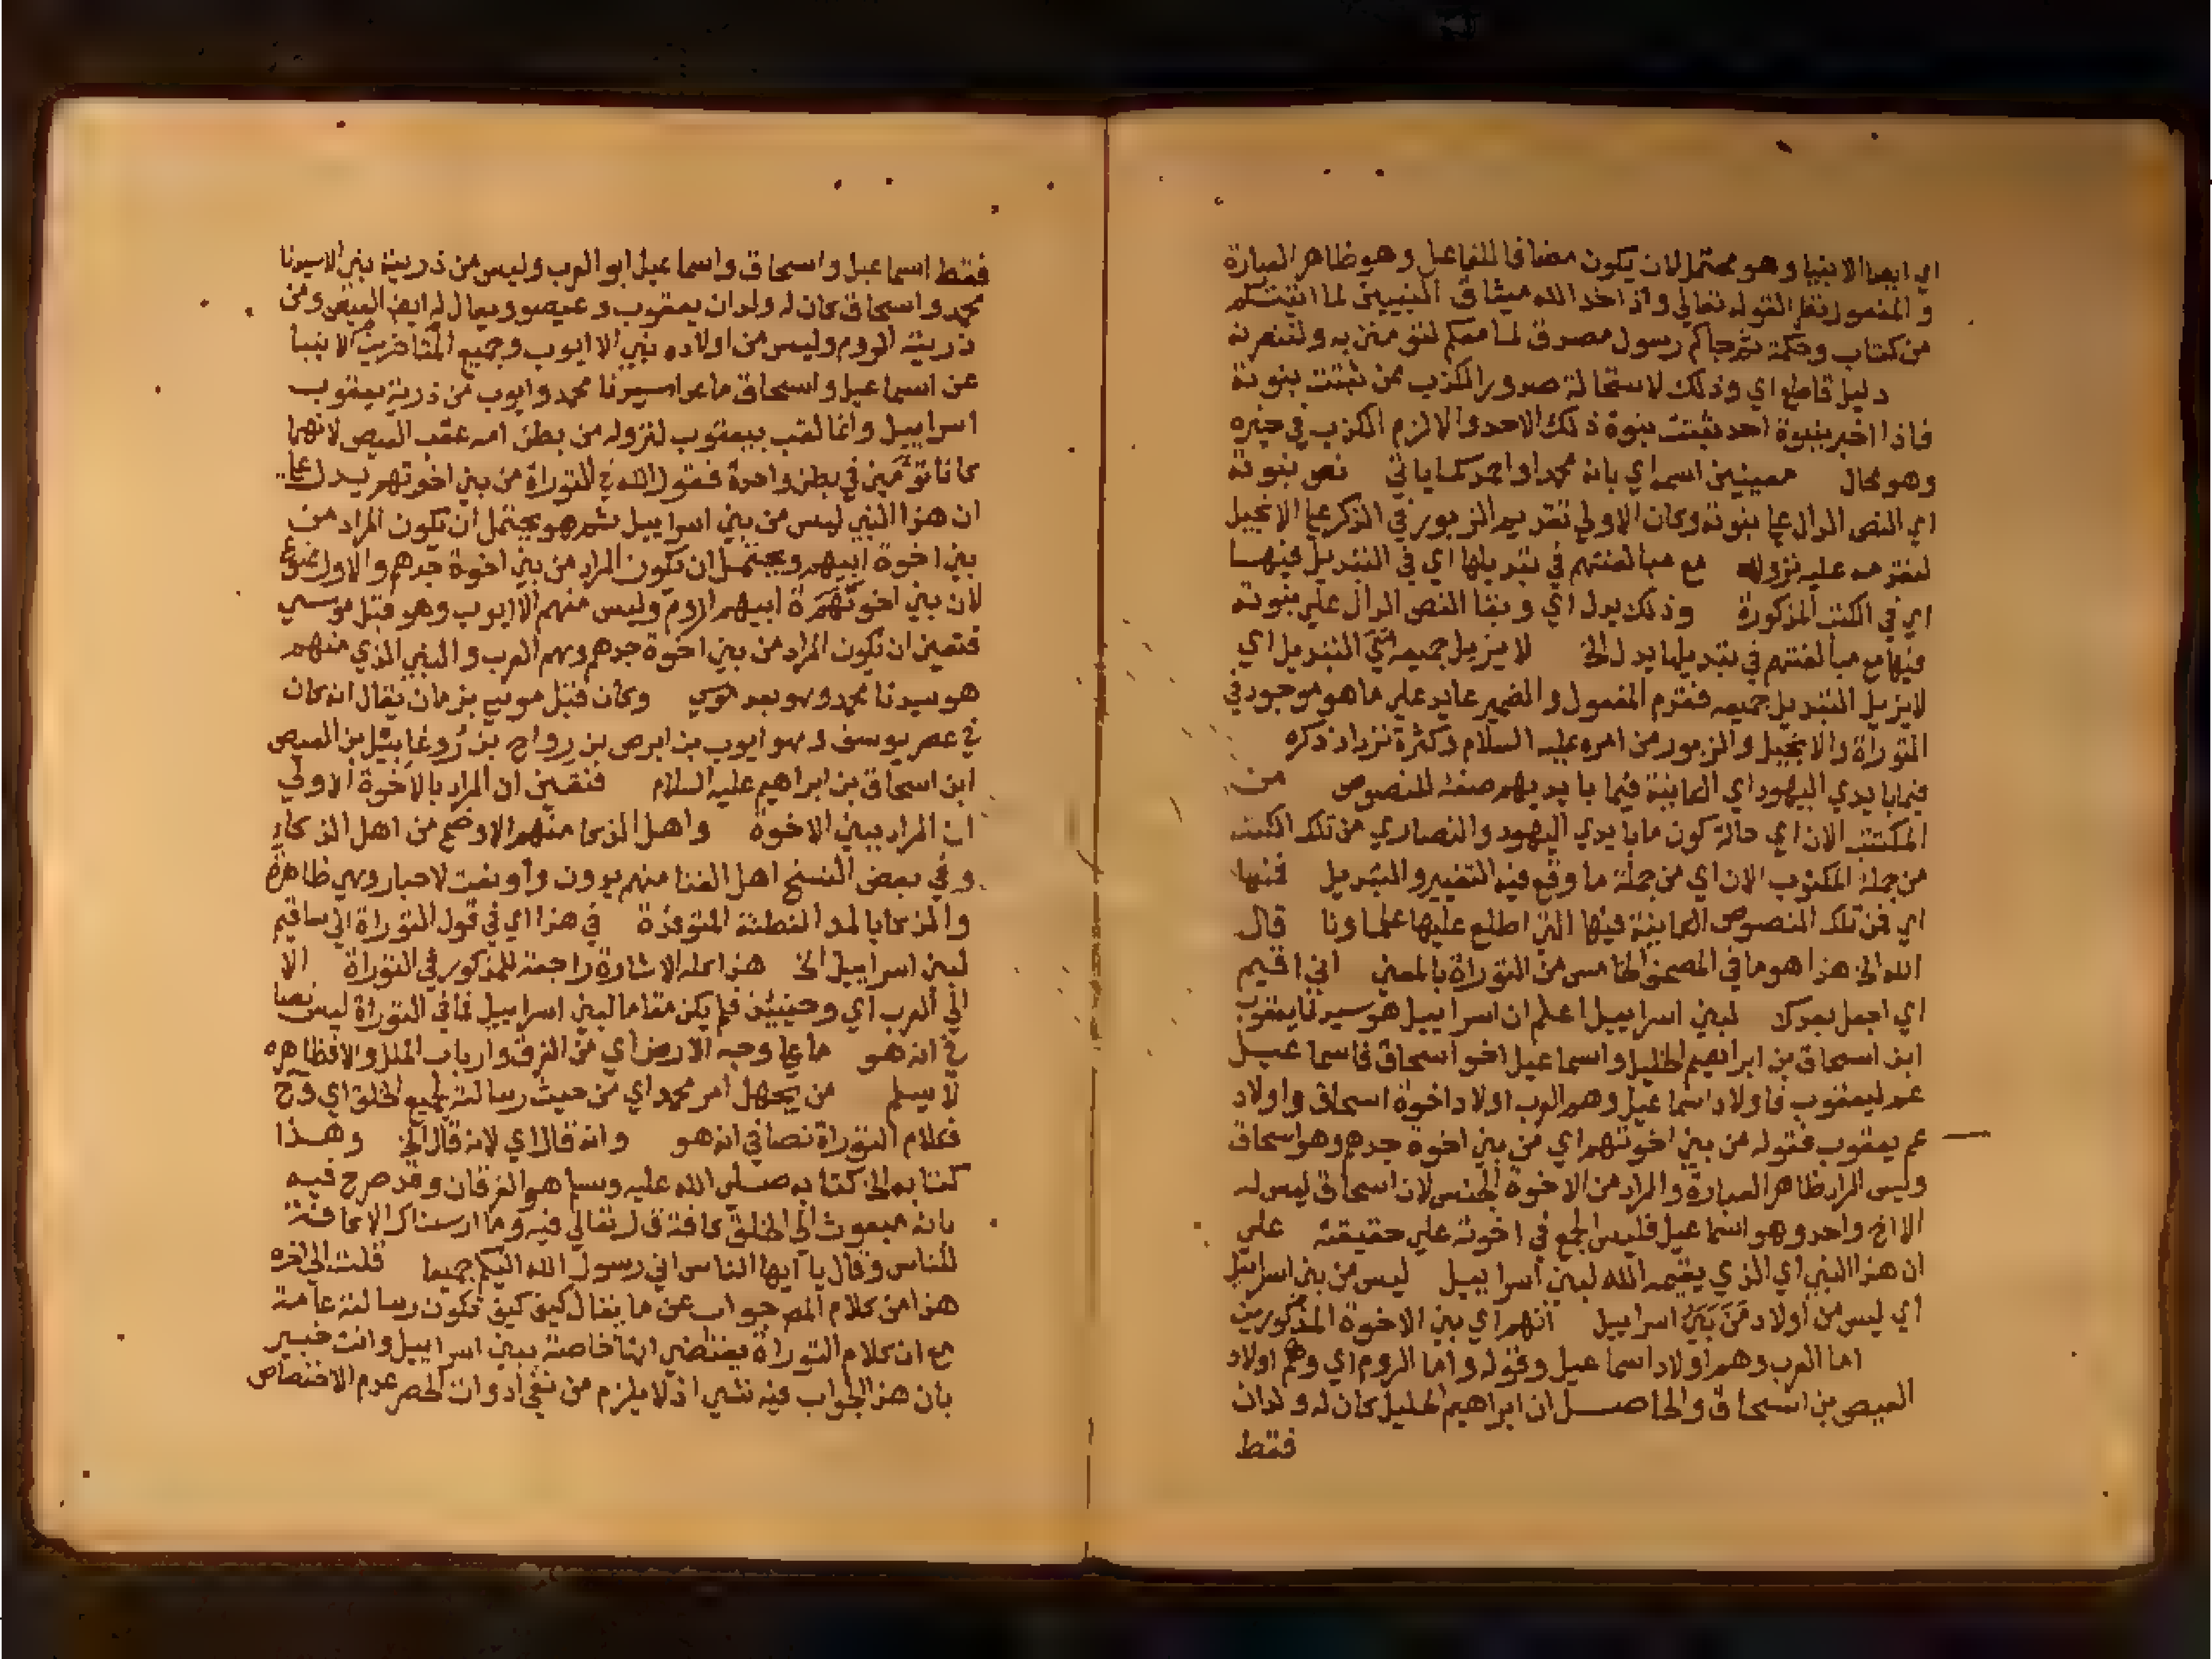 اي ايها الانبيا وهو محتمل لان يكون مضافا للفاعل وهو ظاهر العبارة
و المفعول نظرا لقوله تعالي واذ اخذ الله ميثاق النبيين لما اتيتكم
من كتاب وحكمة ثم جاكم رسول مصدق لما معكم لتؤمنن به ولتنصرنه
دليل قاطع اي وذلك لاستحالة صدور الكذب ممن ثبتت نبوته
فاذا اخبر بنبوة احد ثبتت نبوة ذلك الاحد والا لزم الكذب في خبره
وهو محال معينين اسمه اي بانه محمد او احمد كما ياتي نص نبوته
اي النص الدال علي نبوته وكان الاولي تقديم الزبور في الذكر علي الانجيل
لتقدمه عليه نزولا مع مبالغتهم في تبديلها اي في التبديل فيها
اي في الكتب المذكورة وذلك يدل اي وبقا النص الدال علي نبوته
فيها مع مبالغتهم في تبديلها يدل الخ لا يزيل جميعه التبديل اي
لا يزيل التبديل جميعه فقدم المفعول والضمير عايد علي ما هو موجود في
التوراة والانجيل والزبور من امره عليه السلام وكثرة ترداد ذكره
فيما بايدي اليهود اي الكاينة فيما بايديهم صفة للنصوص من
المكتتب الان اي حالة كون ما بايدي اليهود والنصاري من تلك الكتب
من جملة المكتوب الان اي من جملة ما وقع فيه التغيير والتبديل فمنها
اي فمن تلك النصوص الكاينة فيها التي اطلع عليها علماونا قال
الله الخ هذا هو ما في المصحف الخامس من التوراة بالمعني اني اقيم
اي اجعل بعدك لبني اسراييل اعلم ان اسراييل هو سيدنا يعقوب
ابن اسحاق بن ابراهيم الخليل واسماعيل اخو اسحاق فاسماعيل
عم ليعقوب فاولاد اسماعيل وهم العرب اولاد اخوة اسحاق واولاد
عم يعقوب فقوله من بني اخوتهم اي من بني اخوة جدهم وهو اسحاق
وليس المراد ظاهر العبارة والمراد من الاخوة الجنس لان اسحاق ليس له
الا اخ واحد وهو اسماعيل فليس الجمع في اخوته علي حقيقته علي
ان هذا النبي اي الذي يقيمه الله لبني اسراييل ليس من بني اسراييل
اي ليس من اولاد من بني اسراييل انهم اي بني الاخوة المذكورين
اما العرب وهم اولاد اسماعيل وقوله واما الروم اي وهم اولاد
العيص بن اسحاق والحاصل ان ابراهيم الخليل كان له ولدان
فقط
فقط اسماعيل واسحاق واسماعيل ابو العرب وليس من ذريته نبي الا سيدنا
محمد واسحاق كان له ولدان يعقوب وعيصو ويقال له ايضا العيص ومن
ذريته الروم وليس من اولاده نبي الا ايوب وجميع المتاخرين من الانبيا
عن اسماعيل واسحاق ما عدا سيدنا محمد وايوب من ذرية يعقوب
اسراييل وانما لقب بيعقوب لنزوله من بطن امه عقب العيص لانهما
كانا توءمين في بطن واحدة فقول الله في التوراة من بني اخوتهم يدل علي
ان هذا النبي ليس من بني اسراييل ثم هو يحتمل ان يكون المراد من
بني اخوة ابيهم ويحتمل ان يكون المراد من بني اخوة جدهم والاول ممنوع
لان بني اخوة ابيهم الروم وليس منهم الا ايوب وهو قبل موسي
فتعين ان يكون المراد من بني اخوة جدهم وهم العرب والنبي الذي منهم
هو سيدنا محمد وهو بعد موسي وكان قبل موسي بزمان يقال انه كان
في عصر يوسف وهو ايوب بن ابرص بن رواح بن روغابيل بن العيص
ابن اسحاق بن ابراهيم عليه السلام فتعين ان المراد بالاخوة الاولي
ان المراد ببني الاخوة واهل الذكا منهم الاوضح من اهل الذكا
وفي بعض النسخ اهل الغنا منهم يوون واو نعت لاحبار وهي ظاهرة
والذكا بالمد الفطنة المتوقدة في هذا اي في قول التوراة اني ساقيم
لبني اسراييل الخ هذا كله الاشارة راجعة للمذكور في التوراة الا
الي العرب اي وحينيذ فلم يكن مقاما لبني اسراييل فما في التوراة ليس نصا
في انه هو ما علي وجه الارض اي من الفرق وارباب الملل والا فظاهره
لا يسلم من يجهل امر محمد اي من حيث رسالته لجميع الخلق اي وح
فكلام التوراة نصا في انه هو وانه قال اي لانه قال الخ وهذا
كتابه الخ كتابه صلي الله عليه وسلم هو الفرقان وقد صرح فيه
بانه مبعوث الي الخلق كافة قال تعالي فيه وما ارسلناك الا كافة
للناس وقال يا ايها الناس اني رسول الله اليكم جميعا قلت الي اخره
هذا من كلام المص جواب عن ما يقال كيف كيف تكون رسالته عامة
مع ان كلام التوراة يقتضي انها خاصة ببني اسراييل وانت خبير
بان هذا الجواب فيه شي اذ لا يلزم من نفي ادوات الحصر عدم الاختصاص